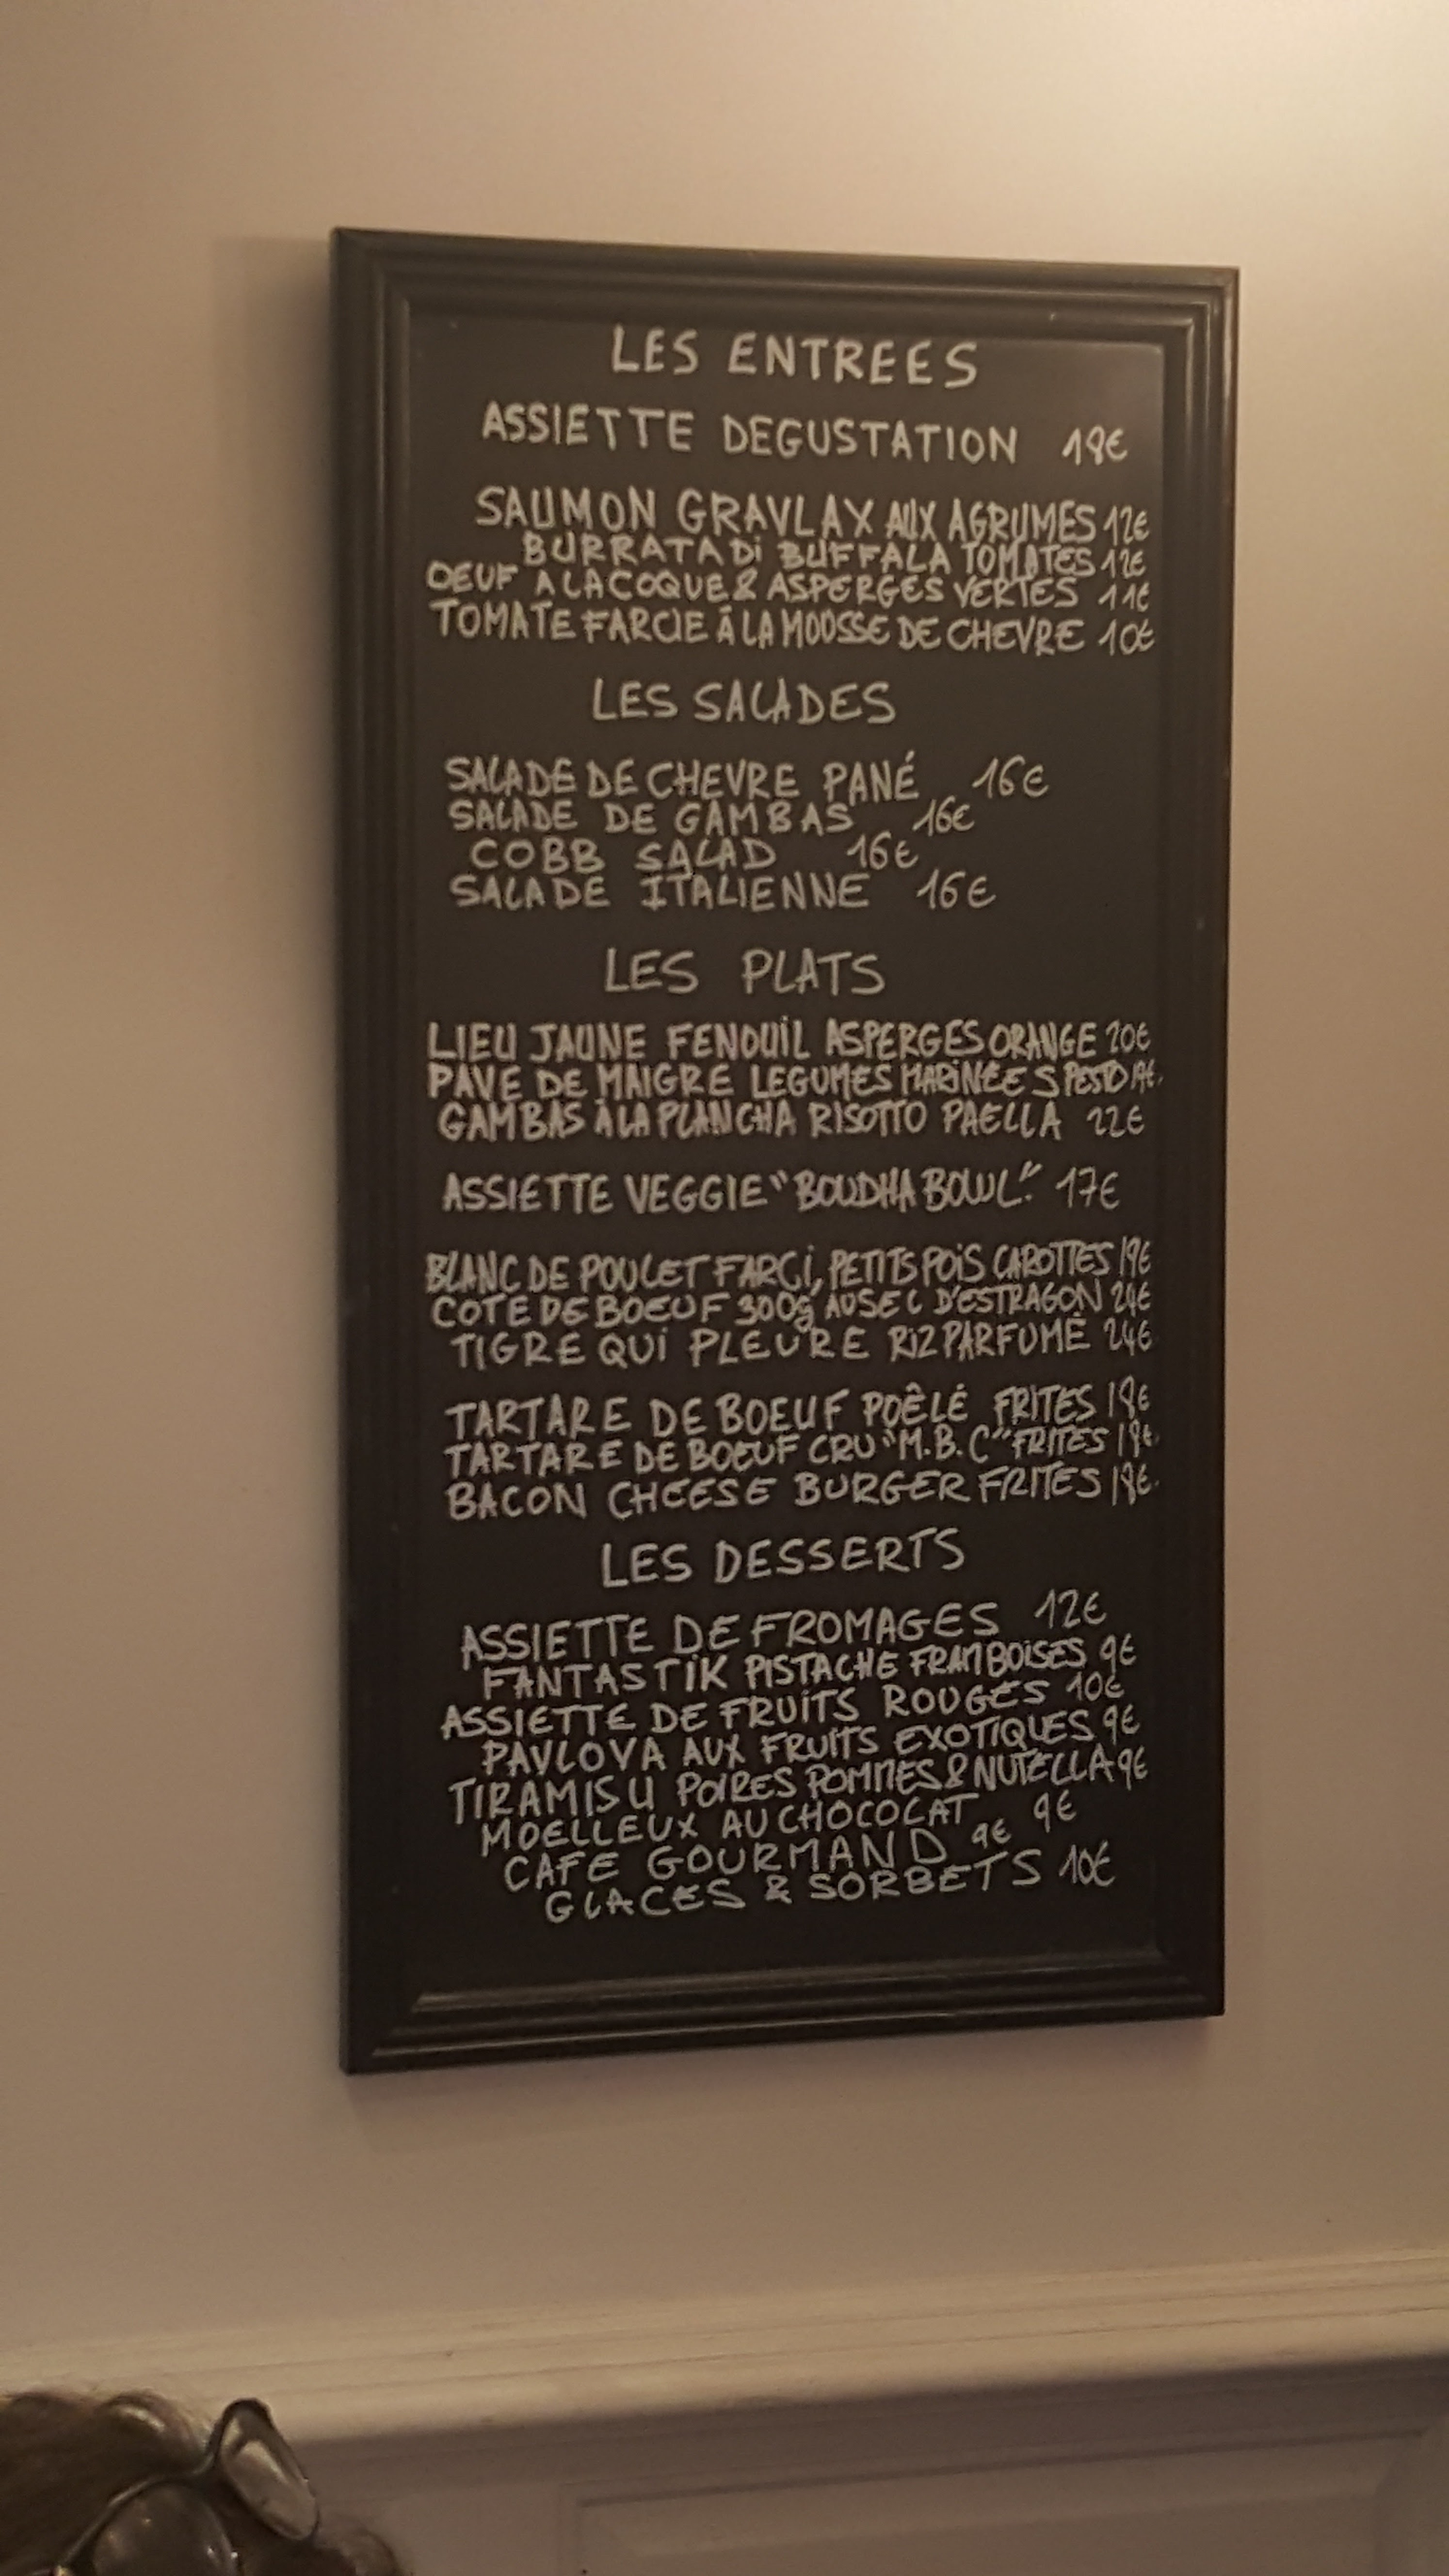 LES ENTREES
ASSIETTE DEGUSTATION 18€
SAUMON GRAVLAX AUX AGRUMES 12€
BURRATA Di BUFFALA TOMATES 12€
OEUF A LA COQUE & ASPERGES VERTES 11€
TOMATE FARCIE À LA MOUSSE DE CHEVRE 10€
LES SALADES
SALADE DE CHEVRE PANÉ 16€
SALADE DE GAMBAS 16€
COBB SALAD 16€
SALADE ITALIENNE 16€
LES PLATS
LIEU JAUNE FENOUIL ASPERGES ORANGE 20€
PAVE DE MAIGRE LEGUMES MARINEES PESTO
GAMBAS À LA PLANCHA RISOTTO PAELLA 22€
ASSIETTE VEGGIE "BOUDHA BOWL" 17€
BLANC DE POULET FARCi, PETITS POiS CAROTTES 19€
COTE DE BOEUF 300g AU SEL D'ESTRAGON 24€
TIGRE QUi PLEURE RIZ PARFUMÉ 24€
TARTARE DE BOEUF POÊLÉ FRITES 18€
TARTARE DE BOEUF CRU "M.B.C" FRITES 18€
BACON CHEESE BURGER FRITES 18€
LES DESSERTS
ASSIETTE DE FROMAGES 12€
FANTASTIK PISTACHE FRAMBOISES 9€
ASSIETTE DE FRUITS ROUGES 10€
PAVLOVA AUX FRUITS EXOTIQUES 9€
TIRAMISU POIRES POMMES & NUTELLA 9€
MOELLEUX AU CHOCOLAT 9€
CAFE GOURMAND 9€
GLACES & SORBETS 10€